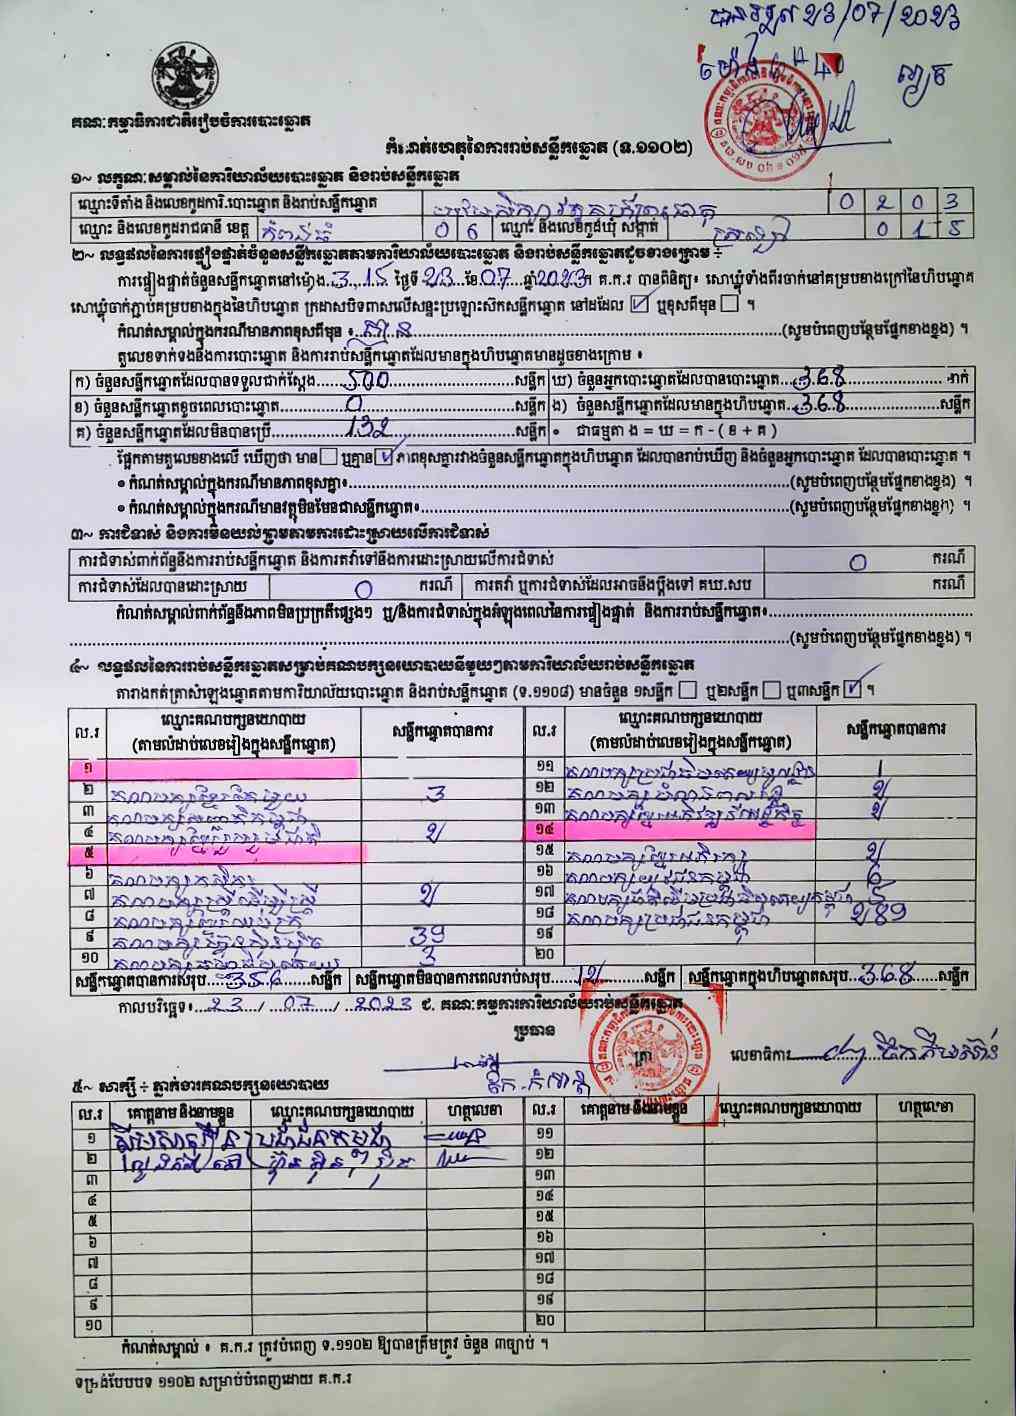 បានទទួល ២៣/07/2023
គណៈកម្មាធិការជាតិរៀបចំការបោះឆ្នោត
កំណត់ហេតុនៃការរាប់សន្លឹកឆ្នោត (ទ.១១០២)
១~ លក្ខណៈសម្គាល់នៃការិយាល័យបោះឆ្នោត និងរាប់សន្លឹកឆ្នោត
ឈ្មោះទីតាំង និងលេខកូដការិ.បោះឆ្នោត និងរាប់សន្លឹកឆ្នោត 0 2 0 3
ឈ្មោះ និងលេខកូដរាជធានី ខេត្ត កំពង់ធំ 0 6 ឈ្មោះ និងលេខកូដឃុំ សង្កាត់ 0 1 5
២~ លទ្ធផលនៃការផ្ទៀងផ្ទាត់ចំនួនសន្លឹកឆ្នោតតាមការិយាល័យបោះឆ្នោត និងរាប់សន្លឹកឆ្នោតដូចខាងក្រោម ÷
ការផ្ទៀងផ្ទាត់ចំនួនសន្លឹកឆ្នោតនៅម៉ោង 3.15 ថ្ងៃទី 23 ខែ 07 ឆ្នាំ 2023 គ.ក.រ បានពិនិត្យ៖ សោឃ្លុំទាំងពីរចាក់នៅគម្របខាងក្រៅនៃហិបឆ្នោត
សោឃ្លុំចាក់ភ្ជាប់គម្របខាងក្នុងនៃហិបឆ្នោត ក្រដាសបិទពាសលើសន្ទះប្រឡោះស៊កសន្លឹកឆ្នោត នៅដដែល ☑ ឬខុសពីមុន ☐ ។
កំណត់សម្គាល់ក្នុងករណីមានភាពខុសពីមុន ៖ គ្មាន (សូមបំពេញបន្ថែមផ្នែកខាងខ្នង) ។
តួលេខទាក់ទងនឹងការបោះឆ្នោត និងការរាប់សន្លឹកឆ្នោតដែលមានក្នុងហិបឆ្នោតមានដូចខាងក្រោម ៖
ក) ចំនួនសន្លឹកឆ្នោតដែលបានទទួលជាក់ស្តែង 500 សន្លឹក ឃ) ចំនួនអ្នកបោះឆ្នោតដែលបានបោះឆ្នោត 368 នាក់
ខ) ចំនួនសន្លឹកឆ្នោតខូចពេលបោះឆ្នោត 0 សន្លឹក ង) ចំនួនសន្លឹកឆ្នោតដែលមានក្នុងហិបឆ្នោត 368 សន្លឹក
គ) ចំនួនសន្លឹកឆ្នោតដែលមិនបានប្រើ 132 សន្លឹក • ជាធម្មតា ង = ឃ = ក - ( ខ + គ )
ផ្អែកតាមតួលេខខាងលើ ឃើញថា មាន ☐ ឬគ្មាន ☑ ភាពខុសគ្នារវាងចំនួនសន្លឹកឆ្នោតក្នុងហិបឆ្នោត ដែលបានរាប់ឃើញ និងចំនួនអ្នកបោះឆ្នោត ដែលបានបោះឆ្នោត ។
• កំណត់សម្គាល់ក្នុងករណីមានភាពខុសគ្នា៖ (សូមបំពេញបន្ថែមផ្នែកខាងខ្នង) ។
• កំណត់សម្គាល់ក្នុងករណីមានវត្ថុមិនមែនជាសន្លឹកឆ្នោត៖ (សូមបំពេញបន្ថែមផ្នែកខាងខ្នង) ។
៣~ ការជំទាស់ និងការមិនយល់ព្រមតាមការដោះស្រាយលើការជំទាស់
ការជំទាស់ពាក់ព័ន្ធនឹងការរាប់សន្លឹកឆ្នោត និងការតវ៉ាទៅនឹងការដោះស្រាយលើការជំទាស់ 0 ករណី
ការជំទាស់ដែលបានដោះស្រាយ 0 ករណី ការតវ៉ា ឬការជំទាស់ដែលអាចនឹងប្តឹងទៅ គឃ.សប ករណី
កំណត់សម្គាល់ពាក់ព័ន្ធនឹងភាពមិនប្រក្រតីផ្សេងៗ ឬ/និងការជំទាស់ក្នុងអំឡុងពេលនៃការផ្ទៀងផ្ទាត់ និងការរាប់សន្លឹកឆ្នោត៖
(សូមបំពេញបន្ថែមផ្នែកខាងខ្នង) ។
៤~ លទ្ធផលនៃការរាប់សន្លឹកឆ្នោតសម្រាប់គណបក្សនយោបាយនីមួយៗតាមការិយាល័យរាប់សន្លឹកឆ្នោត
តារាងកត់ត្រាសំឡេងឆ្នោតតាមការិយាល័យបោះឆ្នោត និងរាប់សន្លឹកឆ្នោត (ទ.១១០៨) មានចំនួន ១សន្លឹក ☐ ឬ២សន្លឹក ☐ ឬ៣សន្លឹក ☑ ។
ល.រ ឈ្មោះគណបក្សនយោបាយ (តាមលំដាប់លេខរៀងក្នុងសន្លឹកឆ្នោត) សន្លឹកឆ្នោតបានការ ល.រ ឈ្មោះគណបក្សនយោបាយ (តាមលំដាប់លេខរៀងក្នុងសន្លឹកឆ្នោត) សន្លឹកឆ្នោតបានការ
១ ១១ 1
២ 3 ១២ 2
៣ ១៣ 2
៤ 2 ១៤
៥ ១៥ គណបក្សខ្មែរអភិរក្ស 2
៦ គណបក្សកសិករ ១៦ គណបក្សយុវជនកម្ពុជា 6
៧ គណបក្សស្ត្រីដើម្បីស្ត្រី 2 ១៧ 5
៨ ១៨ គណបក្សប្រជាជនកម្ពុជា 289
៩ គណបក្សហ្វ៊ុនស៊ិនប៉ិច 39 ១៩
១០ 3 ២០
សន្លឹកឆ្នោតបានការសរុប 356 សន្លឹក សន្លឹកឆ្នោតមិនបានការពេលរាប់សរុប 12 សន្លឹក សន្លឹកឆ្នោតក្នុងហិបឆ្នោតសរុប 368 សន្លឹក
កាលបរិច្ឆេទ៖ 23 / 07 / 2023 ជ. គណៈកម្មការការិយាល័យរាប់សន្លឹកឆ្នោត
ប្រធាន ត្រា លេខាធិការ
៥~ សាក្សី ÷ ភ្នាក់ងារគណបក្សនយោបាយ
ល.រ គោត្តនាម និងនាមខ្លួន ឈ្មោះគណបក្សនយោបាយ ហត្ថលេខា ល.រ គោត្តនាម និងនាមខ្លួន ឈ្មោះគណបក្សនយោបាយ ហត្ថលេខា
១ ប្រជាជនកម្ពុជា ១១
២ ហ្វ៊ុនស៊ិនប៉ិច ១២
៣ ១៣
៤ ១៤
៥ ១៥
៦ ១៦
៧ ១៧
៨ ១៨
៩ ១៩
១០ ២០
កំណត់សម្គាល់ ៖ គ.ក.រ ត្រូវបំពេញ ទ.១១០២ ឱ្យបានត្រឹមត្រូវ ចំនួន ៣ច្បាប់ ។
ទម្រង់បែបបទ ១១០២ សម្រាប់បំពេញដោយ គ.ក.រ